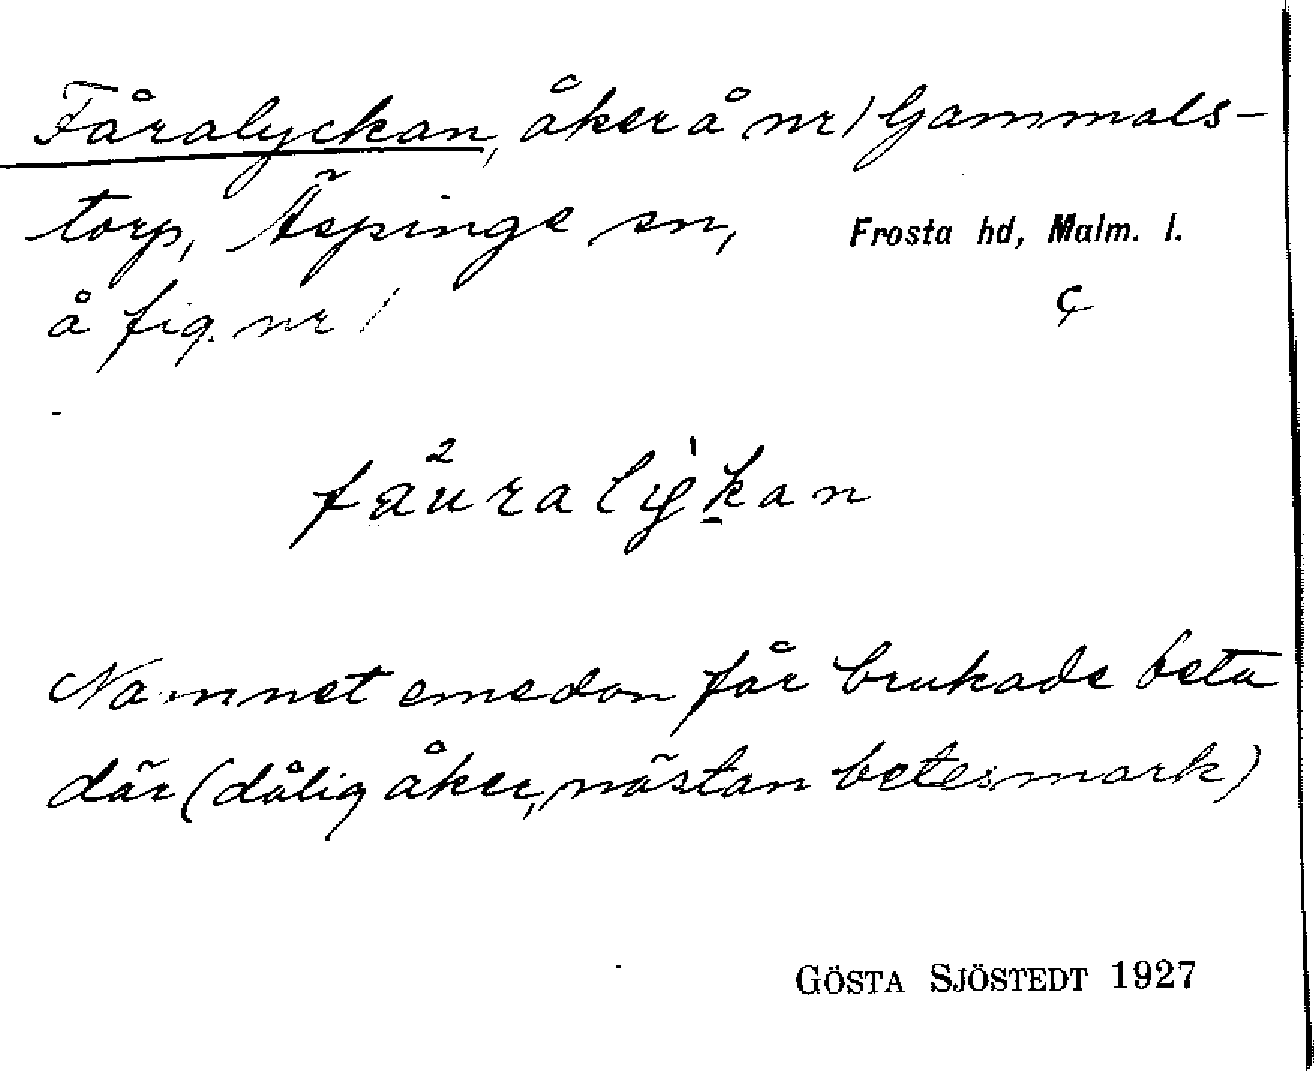 Fåralyckan, åker å nr 1 Gammals-
torp, Äspinge sn, Frosta hd, Malm. l.
å fig. nr 1 ç
fäuralykan
Namnet emedan får brukade beta
där (dålig åker, nästan betesmark)
GÖSTA SJÖSTEDT 1927